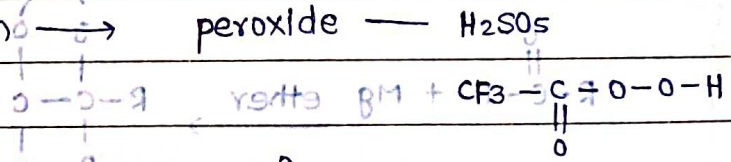 ⟶ peroxide — H2SO5
CF3 – C – O – O – H
||
O